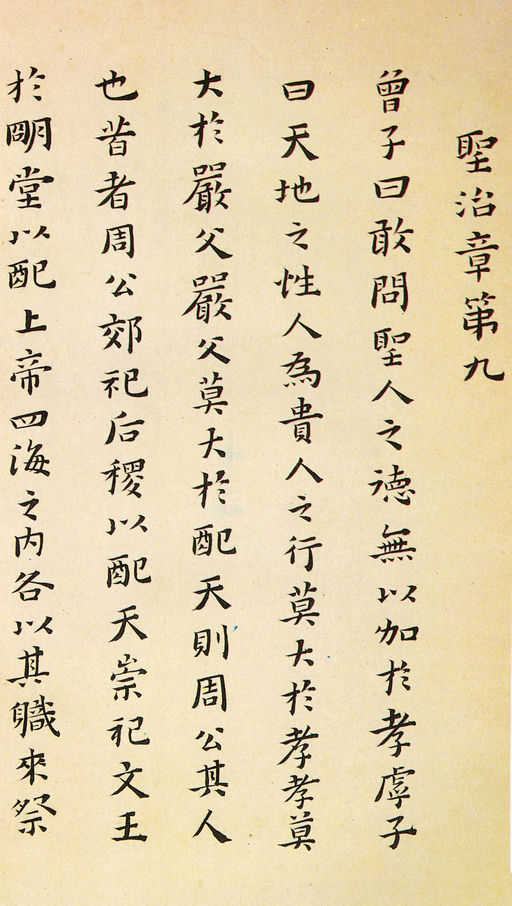 聖治章第九
曾子曰敢問聖人之徳無以加於孝虖子
曰天地之性人為貴人之行莫大於孝孝莫
大於嚴父嚴父莫大於配天則周公其人
也昔者周公郊祀后稷以配天崇祀文王
於朙堂以配上帝四海之内各以其軄來祭